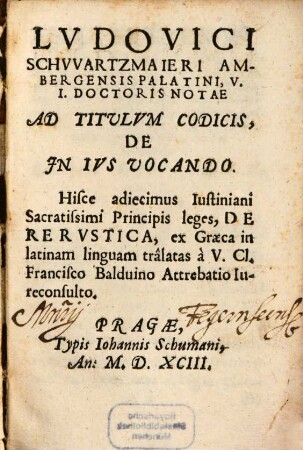 LVDOVICI
SCHVVARTZMAIERI AM-
BERGENSIS PALATINI, V.
I. DOCTORIS NOTAE
AD TITVLVM CODICIS,
DE
IN IVS VOCANDO.
Hisce adiecimus Iustiniani
Sacratissimi Principis leges, DE
RE RVSTICA, ex Græca in
latinam linguam trãlatas à V. Cl.
Francisco Balduino Attrebatio Iu-
reconsulto.
PRAGÆ,
Typis Iohannis Schumani,
An: M. D. XCIII.
Bayerische
Staatsbibliothek
München